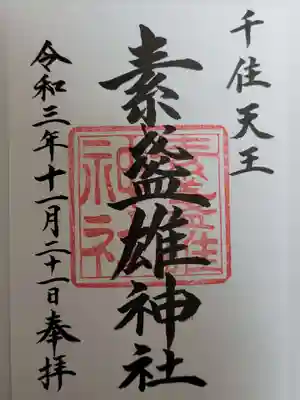 千住天王
素盞雄神社
令和三年十一月二十一日奉拝